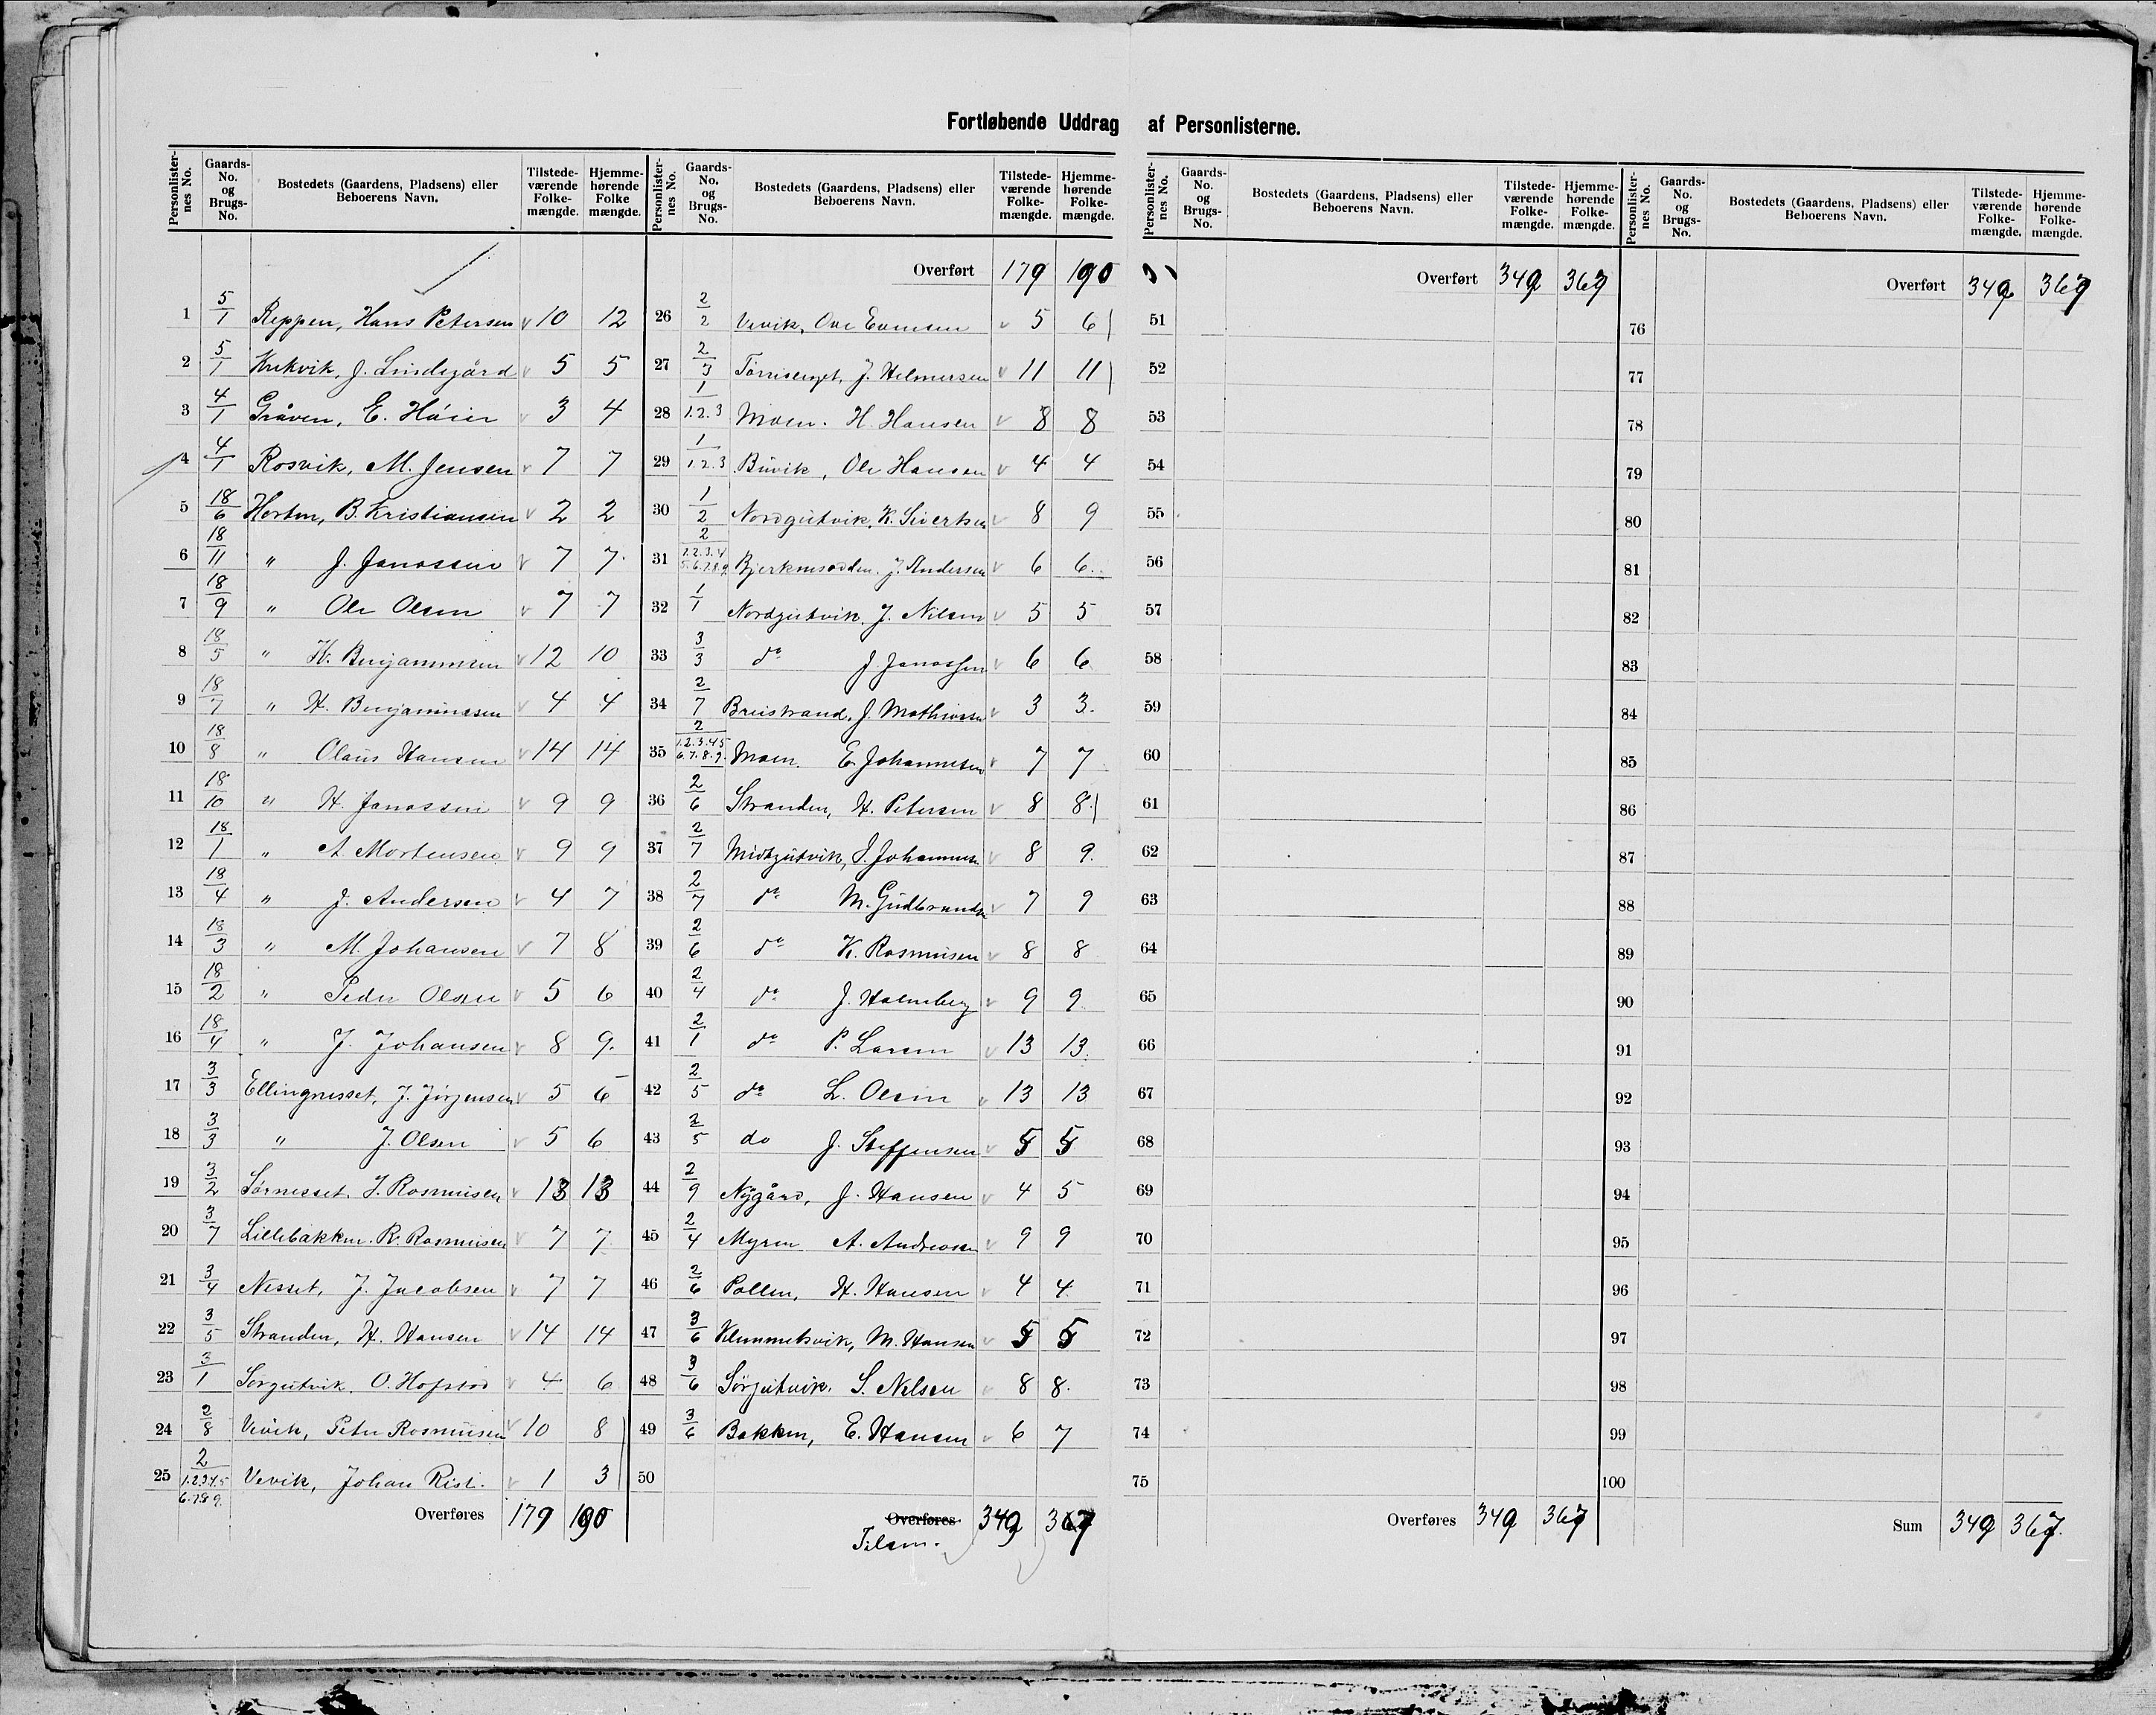 Fortløbende Uddrag af Personlisterne.
Personlisternes No. Gaards-No. og Brugs-No. Bostedets (Gaardens, Pladsens) eller Beboerens Navn. Tilstedeværende Folkemængde. Hjemmehørende Folke mængde.
1 5/1 Reppen, Hans Petersen 10 12
2 5/1 Krekvik, J. Lindegård 5 5
3 4/1 Gråven, E. Høier 3 4
4 4/1 Rosvik, M. Jensen 7 7
5 18/6 Horten, B. Kristiansen 2 2
6 18/11 " J. Jonassen 7 7
7 18/9 " Ole Olsen 7 7
8 18/5 " K. Benjaminsen 12 10
9 18/7 " H. Benjaminsen 4 4
10 18/8 " Olaus Hansen 14 14
11 18/10 " H. Jonassen 9 9
12 18/1 " A Mortensen 9 9
13 18/4 " J. Andersen 4 7
14 18/3 " M. Johansen 7 8
15 18/2 " Peder Olsen 5 6
16 18/4 " J. Johansen 8 9.
17 3/3 Ellingnesset, J. Jörgensen 5 6
18 3/3 " J. Olsen 5 6
19 3/2 Sørnesset, J. Rasmusen 13 13
20 3/7 Lillebakken. R. Rasmusen 7 7
21 3/4 Nesset, J. Jacobsen 7 7
22 3/5 Stranden, H. Hansen 14 14
23 3/1 Sørgutvik. O. Hofstad 4 6
24 2/8 Vevik, Peter Rasmusen 10 8
25 2/1.2.3.4.5 6.7.8.9. Vevik, Johan Rist. 1 3
Overføres 179 190
Personlisternes No. Gaards-No. og Brugs-No. Bostedets (Gaardens, Pladsens) eller Beboerens Navn. Tilstedeværende Folkemængde. Hjemmehørende Folkemængde.
Overført 179 190
26 2/2 Vevik, Ove Evensen 5 6
27 2/3 J. Helmersen 11 11
28 1/1.2.3 Moen. H. Hansen 8 8
29 1/1.2.3 Buvik, Ole Hansen 4 4
30 1/2 Nordgutvik, K. Sivertsen 8 9
31 2/1.2.3.4 5.6.7.8.9 Bjerkenesodden. J. Andersen 6 6.
32 1/1 Nordgutvik. J. Nilsen 5 5
33 3/3 do J. Jonassen 6 6
34 2/7 Breistrand, J. Mathisen 3 3.
35 2/1.2.3.4.5 6.7.8.9. Moen. E. Johannesen 7 7
36 2/6 Stranden, H. Petersen 8 8
37 2/7 Midtgutvik, J. Johannesen 8 9.
38 2/7 do M. Gudbrandsen 7 9
39 2/6 do K. Rasmusen 8 8
40 2/4 do J. Holmberg 9 9
41 2/1 do P. Larsen 13 13.
42 2/5 do L. Olsen 13 13
43 2/5 do J. Steffensen 5 5
44 2/9 Nygård, J. Hansen 4 5
45 2/4 Myren A. Andreasen 9 9
46 2/6 Pollen, H. Hansen 4 4
47 3/6 Klemmetsvik, M. Hansen 5 5
48 3/6 Sørgutvik. S. Nilsen 8 8.
49 3/6 Bakken, E. Hansen 6 7
50
Overføres 349 367
Tilsm.
Personlisternes No. Gaards-No. og Brugs-No. Bostedets (Gaardens, Pladsens) eller Beboerens Navn. Tilstedeværende Folkemængde. Hjemmehørende Folkemængde.
Overført 349 367
51
52
53
54
55
56
57
58
59
60
61
62
63
64
65
66
67
68
69
70
71
72
73
74
75
Overføres 349 367
Personlisternes No. Gaards-No. og Brugs-No. Bostedets (Gaardens, Pladsens) eller Beboerens Navn. Tilstedeværende Folkemængde. Hjemmehørende Folkemængde.
Overført 349 367
76
77
78
79
80
81
82
83
84
85
86
87
88
89
90
91
92
93
94
95
96
97
98
99
100
Sum 349 367.